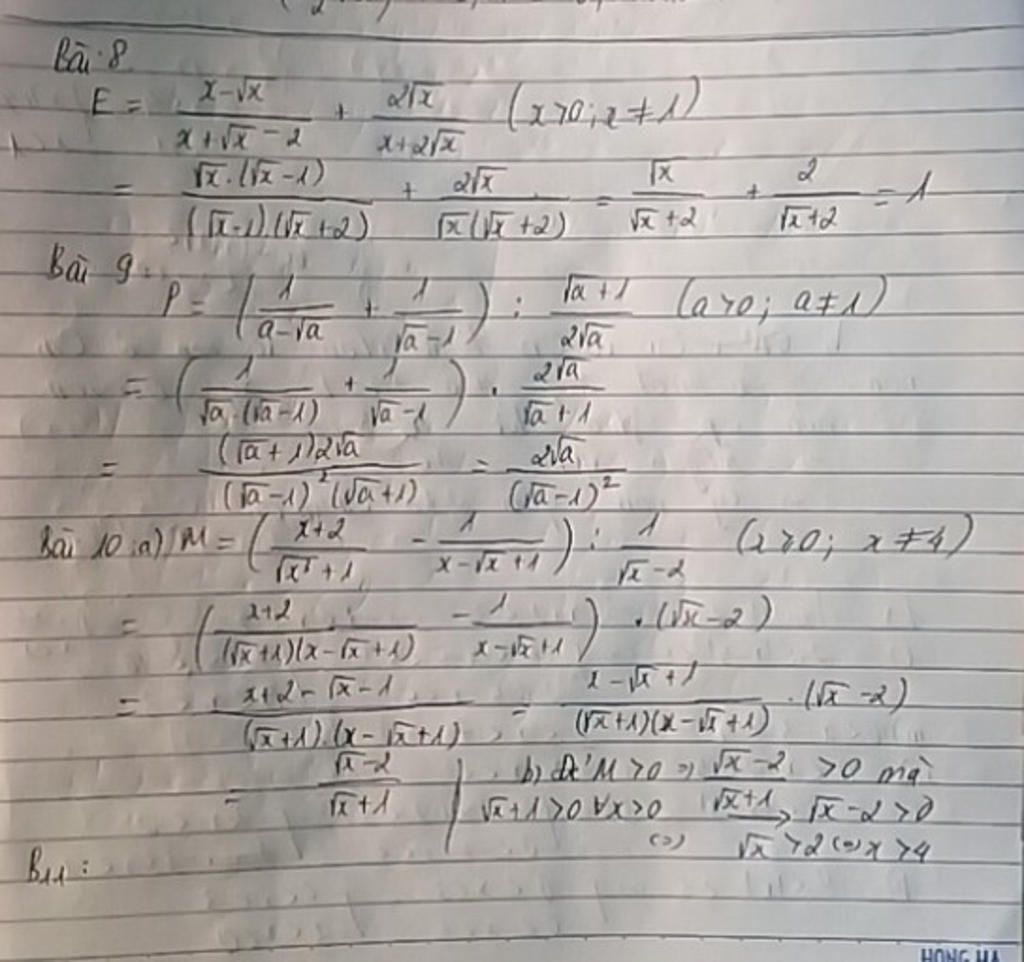 Bài 8
E = \frac{x-\sqrt{x}}{x+\sqrt{x}-2} + \frac{2\sqrt{x}}{x+2\sqrt{x}} (x>0; x≠1)
= \frac{\sqrt{x}.(\sqrt{x}-1)}{(\sqrt{x}-1).(\sqrt{x}+2)} + \frac{2\sqrt{x}}{\sqrt{x}(\sqrt{x}+2)} = \frac{\sqrt{x}}{\sqrt{x}+2} + \frac{2}{\sqrt{x}+2} = 1
Bài 9.
P = (\frac{1}{a-\sqrt{a}} + \frac{1}{\sqrt{a}-1}) : \frac{\sqrt{a}+1}{2\sqrt{a}} (a>0; a≠1)
= (\frac{1}{\sqrt{a}.(\sqrt{a}-1)} + \frac{1}{\sqrt{a}-1}) . \frac{2\sqrt{a}}{\sqrt{a}+1}
= \frac{(\sqrt{a}+1)2\sqrt{a}}{(\sqrt{a}-1)^2(\sqrt{a}+1)} = \frac{2\sqrt{a}}{(\sqrt{a}-1)^2}
Bài 10:a) M = (\frac{x+2}{\sqrt{x^3}+1} - \frac{1}{x-\sqrt{x}+1}) : \frac{1}{\sqrt{x}-2} (x≥0; x≠4)
= (\frac{x+2}{(\sqrt{x}+1)(x-\sqrt{x}+1)} - \frac{1}{x-\sqrt{x}+1}) . (\sqrt{x}-2)
= \frac{x+2-\sqrt{x}-1}{(\sqrt{x}+1).(x-\sqrt{x}+1)} = \frac{x-\sqrt{x}+1}{(\sqrt{x}+1)(x-\sqrt{x}+1)} . (\sqrt{x}-2)
= \frac{\sqrt{x}-2}{\sqrt{x}+1}
b) Để M>0 => \frac{\sqrt{x}-2}{\sqrt{x}+1} >0 mà
\sqrt{x}+1>0 ∀x>0 → \sqrt{x}-2>0
(=) \sqrt{x}>2 (=) x>4
B11:
HONG HA